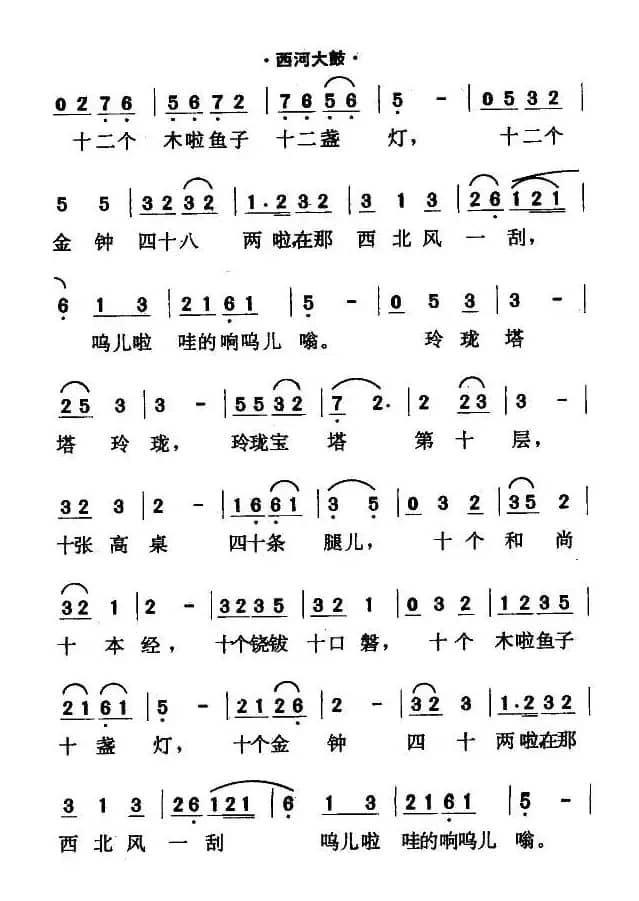 ·西河大鼓·
0 2 7 6 | 5 6 7 2 | 7 6 5 6 | 5 - | 0 5 3 2 |
十二个 木啦鱼子 十二盏 灯， 十二个
5 5 | 3 2 3 2 | 1· 2 3 2 | 3 1 3 | 2 6 1 2 1 |
金钟四十八 两啦在那 西北风一刮，
6 1 3 | 2 1 6 1 | 5 - | 0 5 3 | 3 - |
呜儿啦 哇的响呜儿 嗡。 玲珑塔
2 5 3 | 3 - | 5 5 3 2 | 7 2· | 2 2 3 | 3 - |
塔玲珑， 玲珑宝 塔 第十层，
3 2 3 | 2 - | 1 6 6 1 | 3 5 | 0 3 2 | 3 5 2 |
十张高桌 四十条 腿儿， 十个和尚
3 2 1 | 2 - | 3 2 3 5 | 3 2 1 | 0 3 2 | 1 2 3 5 |
十本经， 十个铙钹 十口磐， 十个 木啦鱼子
2 1 6 1 | 5 - | 2 1 2 6 | 2 - | 3 2 3 | 1· 2 3 2 |
十盏灯， 十个金钟 四十两啦在那
3 1 3 | 2 6 1 2 1 | 6 1 3 | 2 1 6 1 | 5 - |
西北风一刮 呜儿啦 哇的响呜儿 嗡。